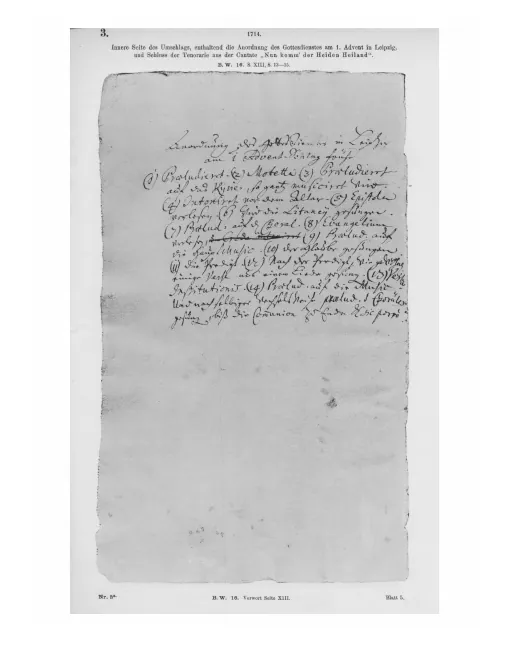 3.
1714.
Innere Seite des Umschlags, enthaltend die Anordnung des Gottesdienstes am 1. Advent in Leipzig,
und Schluss der Tenorarie aus der Cantate „Nun komm' der Heiden Heiland“.
B. W. 16. S. XIII, S. 13—15.
Anordnung des GottesDienstes in Leipzig
am 1 Advent-Sontag frühe
(1) Præludieret (2) Motetta (3) Præludieret
auf das Kyrie, so gantz musiciret wird
(4) Intoniret vor dem Altar (5) Epistola
verlesen (6) Wird die Litaney gesungen.
(7) Prælud: auf den Choral. (8) Evangelium
verlesen (9) Prælud. auf
die HauptMusic. (10) der Glaube gesungen
(11) Die Predigt (12) Nach der Predigt, wie gewöhnlich
einige Verse aus einem Liede gesung. (13) Verba
Institutionis (14) Prælud. auf die Music.
Und nach selbiger wechselsweise prælud. v Choräle
gesung. biß die Communion zu Ende & sic porrò
Nr. 3ª.
B. W. 16. Vorwort Seite XIII.
Blatt 5.